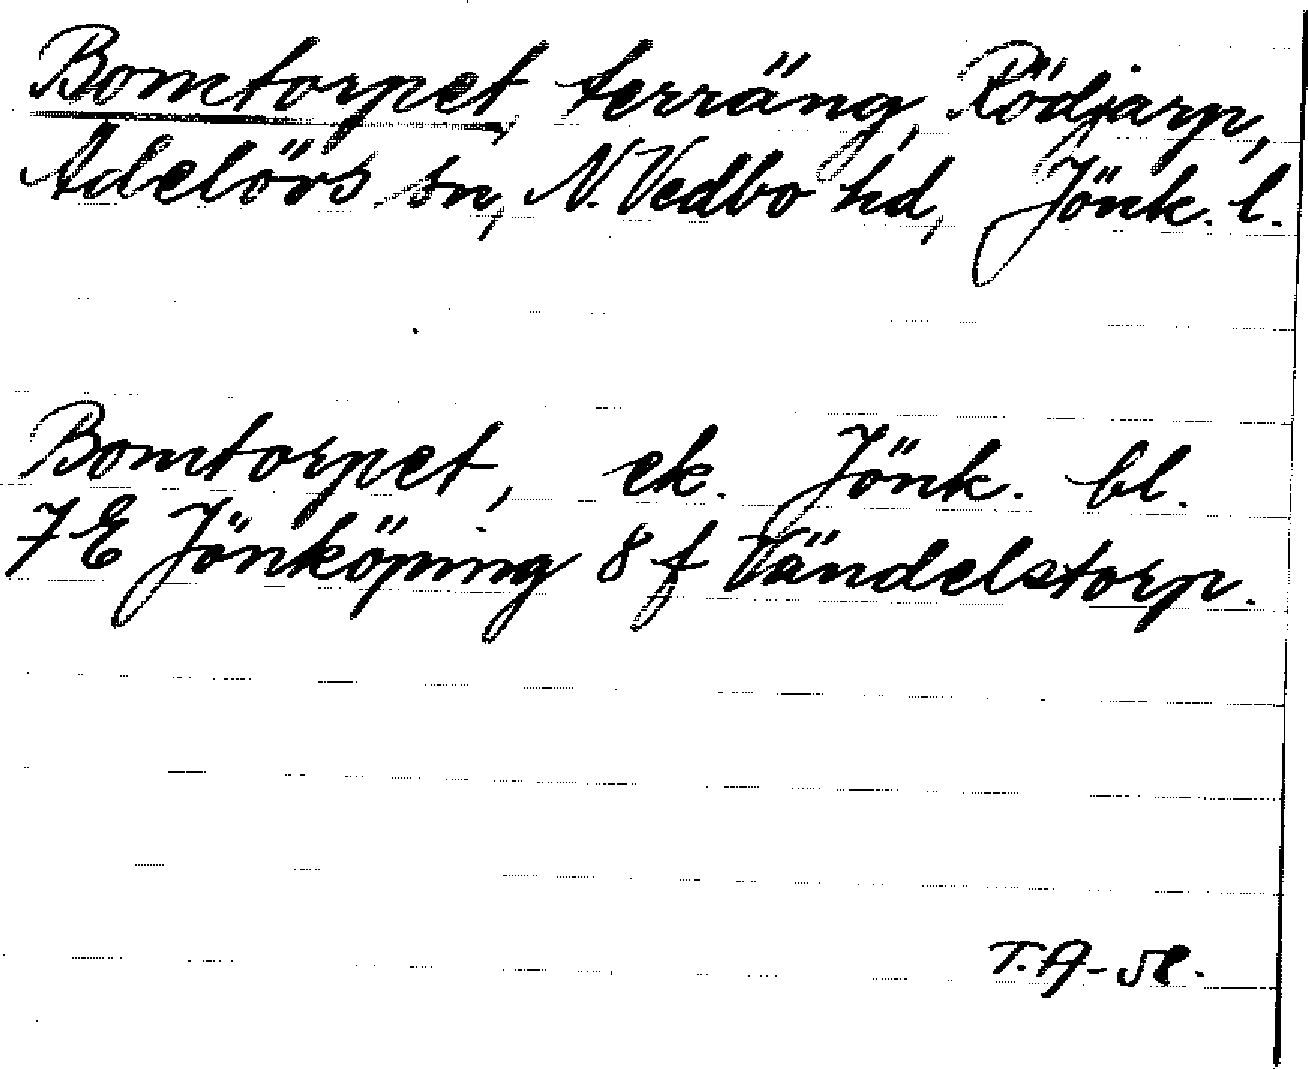 Bomtorpet, terräng, Rödjarp,
Adelövs sn, N. Vedbo hd, Jönk. l.
Bomtorpet, ek. Jönk. bl.
7 E Jönköping 8 f Vändelstorp.
T. A-